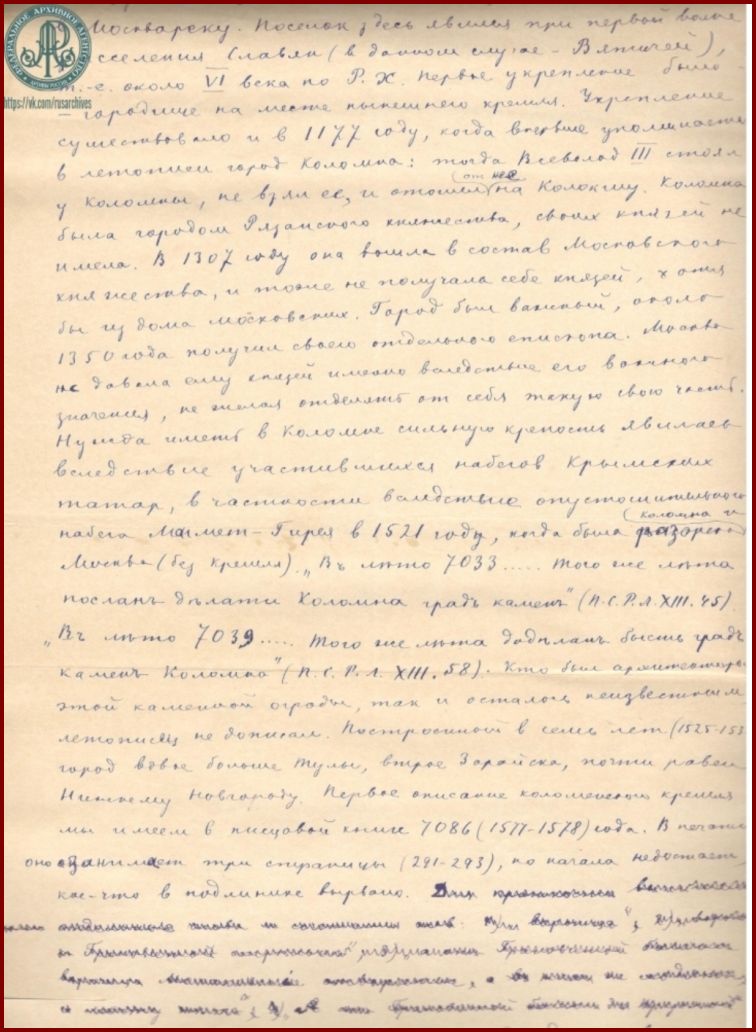 ФЕДЕРАЛЬНОЕ АРХИВНОЕ АГЕНТСТВО
https://vk.com/rusarchives
Москварску. Поселок здесь явился при первой волне
сселения Славян (в данном случае - Вятичей),
т.-е. около VI века по Р. Х. Первое укрепление было -
- городище на месте нынешнего кремля. Укрепление
существовало и в 1177 году, когда впервые упоминается
в летописи город Коломна: тогда Всеволод III стоял
у Коломны, не взял ее, и отошел (от нее) на Колокшу. Коломна
была городом Рязанского княжества, своих князей не
имела. В 1307 году она вошла в состав Московского
княжества, и тоже не получала себе князей, хотя
бы из дома московских. Город был важный, около
1350 года получил своего отдельного епископа. Москва
не давала ему князей именно вследствие его важного
значения, не желая отделять от себя такую свою часть.
Нужда иметь в Коломне сильную крепость явилась
вследствие участившихся набегов Крымских
татар, в частности вследствие опустошительного
набега Магмет-Гирея в 1521 году, когда была (Коломна и разорена
Москва (без Кремля). „Въ лѣто 7033..... Того же лѣта
посланъ дѣлати Коломна градъ каменъ" (П.С.Р.Л. XIII. 45).
„Въ лѣто 7039..... Того же лѣта додѣланъ бысть градъ
каменъ Коломна" (П.С.Р.Л. XIII. 58). Кто был архитектором
этой каменной ограды, так и осталось неизвестным
летописец не дописал. Построенной в семь лет (1525-153
город вдвое больше Тулы, втрое Зарайска, почти равен
Нижнему Новгороду. Первое описание коломенского кремля
мы имеем в писцовой книге 7086 (1577-1578) года. В печати
оно занимает три страницы (291-293), но начала недостает
кое-что в подлинике вырвано.